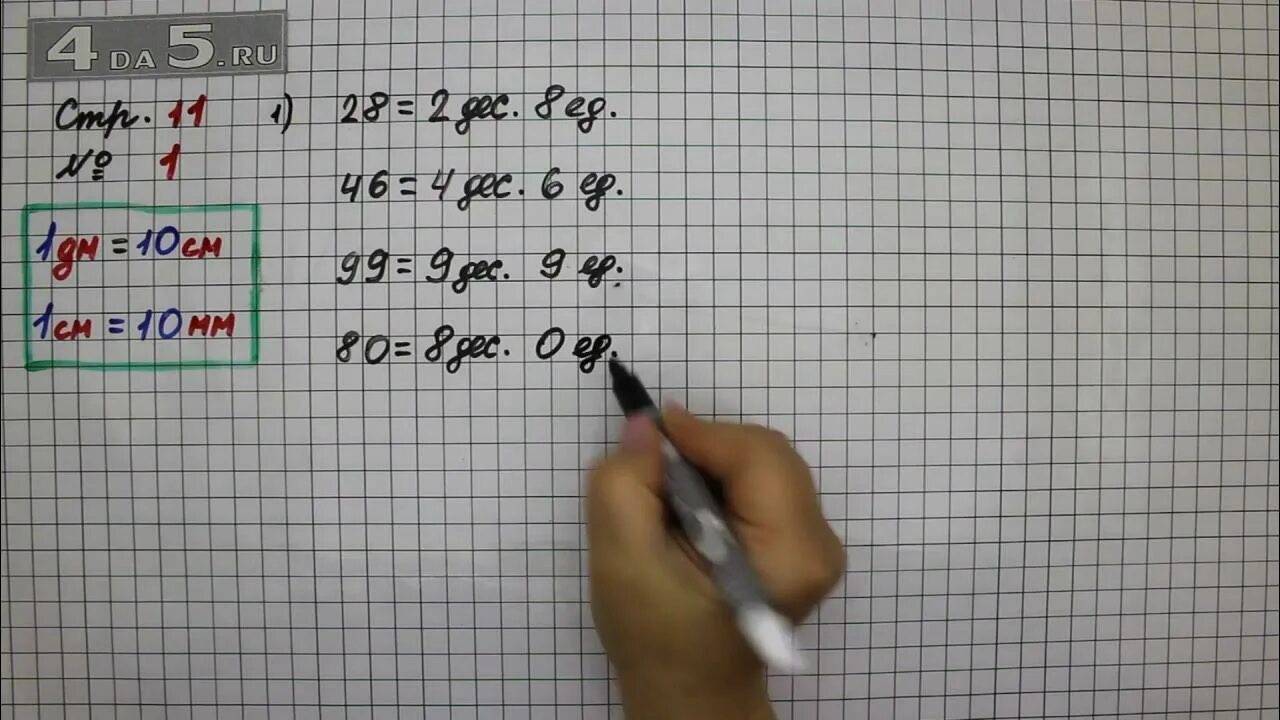 4DA5.RU
Стр. 11
№ 1
1дм = 10см
1см = 10мм
1) 28 = 2 дес. 8 ед.
46 = 4 дес. 6 ед.
99 = 9 дес. 9 ед.
80 = 8 дес. 0 ед.